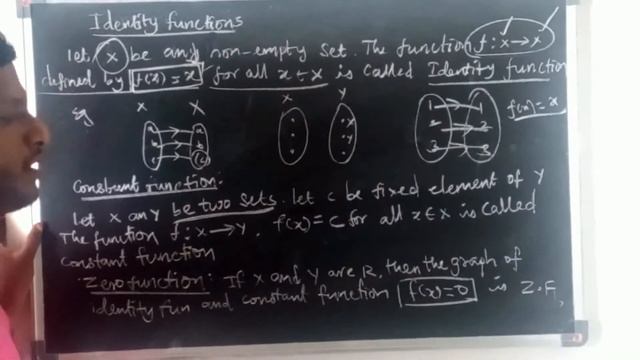 Identity functions
let X be any non-empty set. The function f: X→X
defined by f(x) = x for all x ∈ X is called Identity function
eg X X X Y f(x) = x
1 1
2 2
3 3
Constant function:
let X any be two sets. let c be fixed element of Y
The function f: X→Y, f(x) = c for all x ∈ X is called
constant function
Zero function: If X and Y are R, then the graph of
identity fun and constant function f(x)=0 is Z.F,